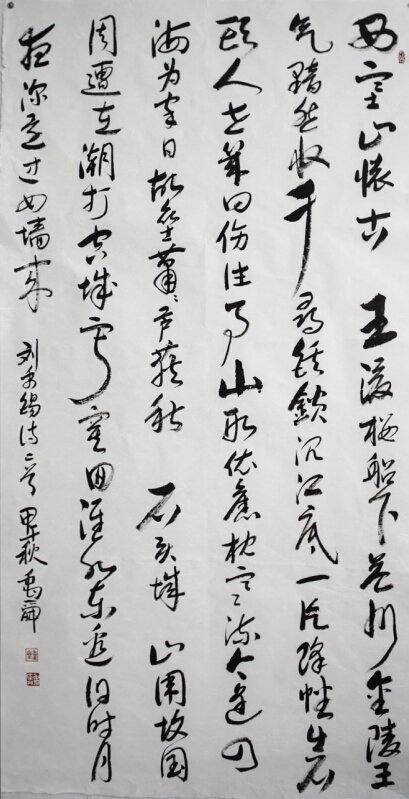 西塞山怀古 王濬楼船下益州金陵王
气黯然收千寻铁鎖沉江底一片降幡出石
头人世几回伤往事山形依旧枕寒流今逢四
海为家日故垒萧萧芦荻秋 石头城 山围故国
周遭在潮打空城寂寞回淮水东边旧时月
夜深还过女墙来 刘禹锡诗二首